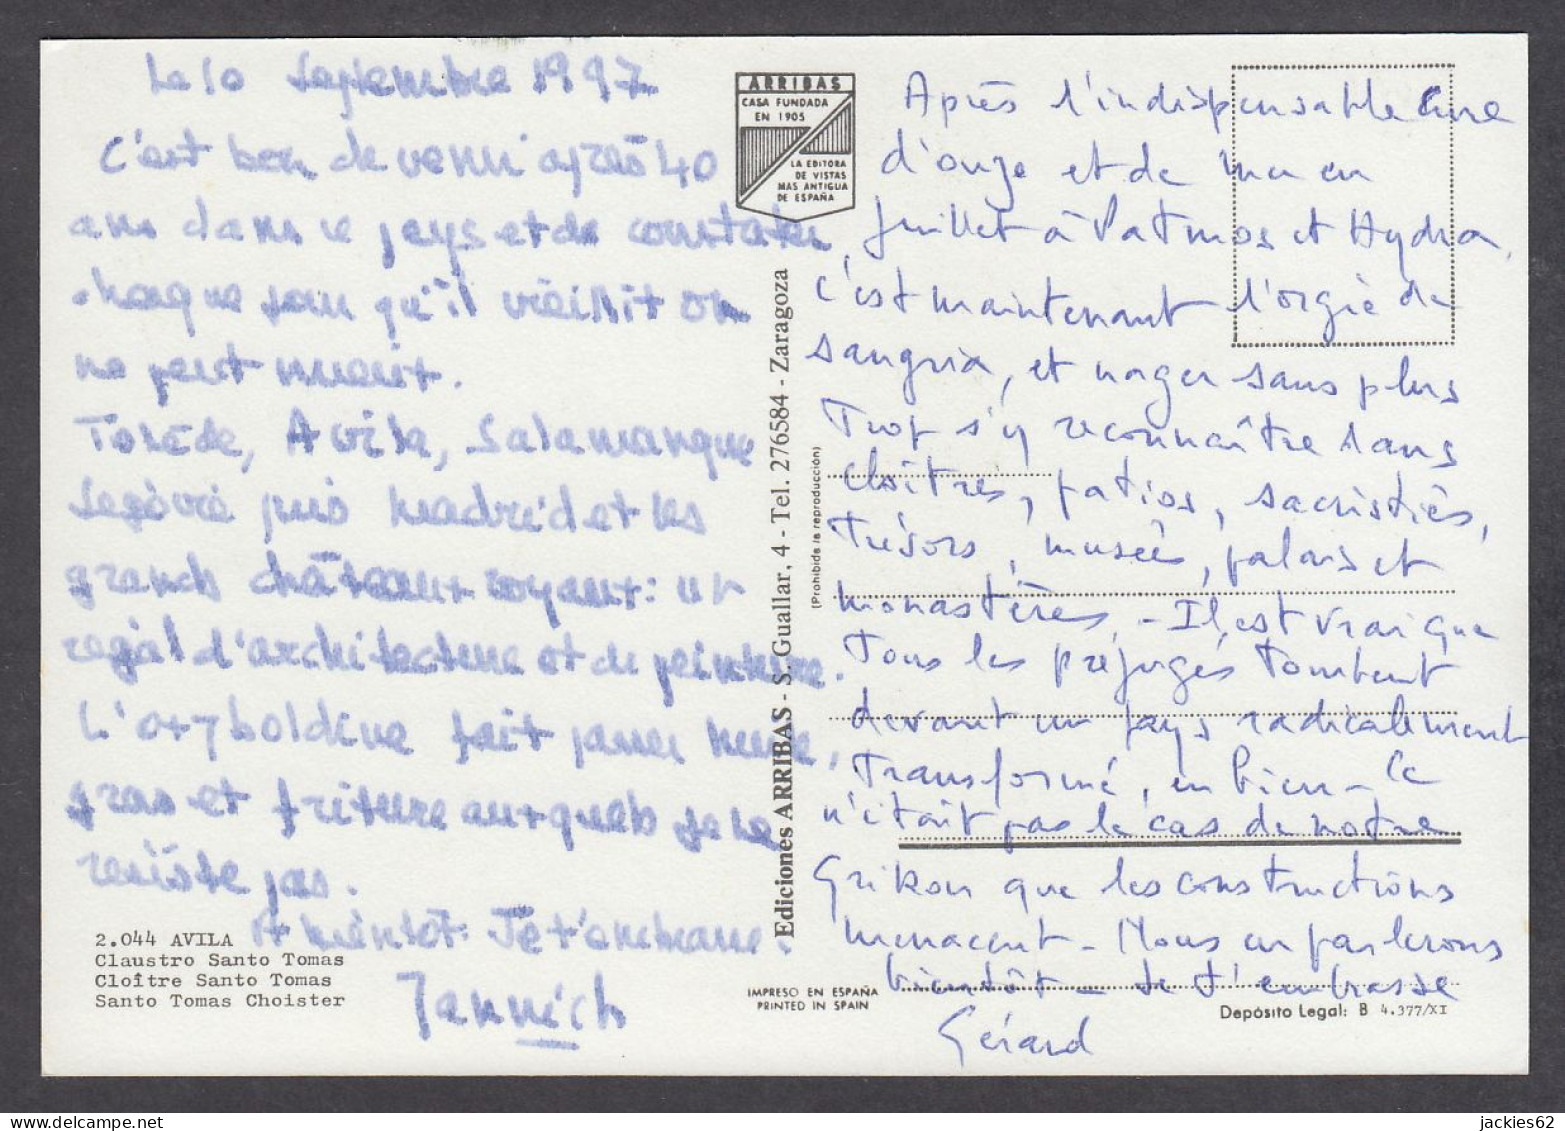 Le 10 Septembre 1997
C'est bon de venir après 40
ans dans ce pays et de constater
chaque jour qu'il vieillit on
ne peut mieux.
Tolède, Avila, Salamanque
Ségovie puis Madrid et les
grands châteaux royaux : un
régal d'architecture et de peinture.
L'oxyboldine fait passer
gras et friture auxquels je ne
résiste pas.
A bientôt. Je t'embrasse.
Yannick
2.044 AVILA
Claustro Santo Tomas
Cloître Santo Tomas
Santo Tomas Choister
ARRIBAS
CASA FUNDADA
EN 1905
LA EDITORA
DE VISTAS
MAS ANTIGUA
DE ESPAÑA
Ediciones ARRIBAS - S. Guallar, 4 - Tel. 276584 - Zaragoza
(Prohibida la reproducción)
IMPRESO EN ESPAÑA
PRINTED IN SPAIN
Après l'indispensable cure
d'ouzo et de mer en
Juillet à Patmos et Hydra,
c'est maintenant l'orgie de
sangria, et nager sans plus
trop s'y reconnaître dans
cloîtres, patios, sacristies,
trésors, musées, palais et
monastères. - Il est vrai que
tous les préjugés tombent
devant un pays radicalement
transformé, en bien - ce
n'était pas le cas de notre
Grikou que les constructions
menacent - Nous en parlerons
bientôt - Je t'embrasse
Gérard
Depósito Legal: B 4.377/XI
jackies62